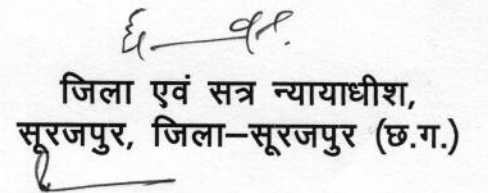 जिला एवं सत्र न्यायाधीश,
सूरजपुर, जिला–सूरजपुर (छ.ग.)